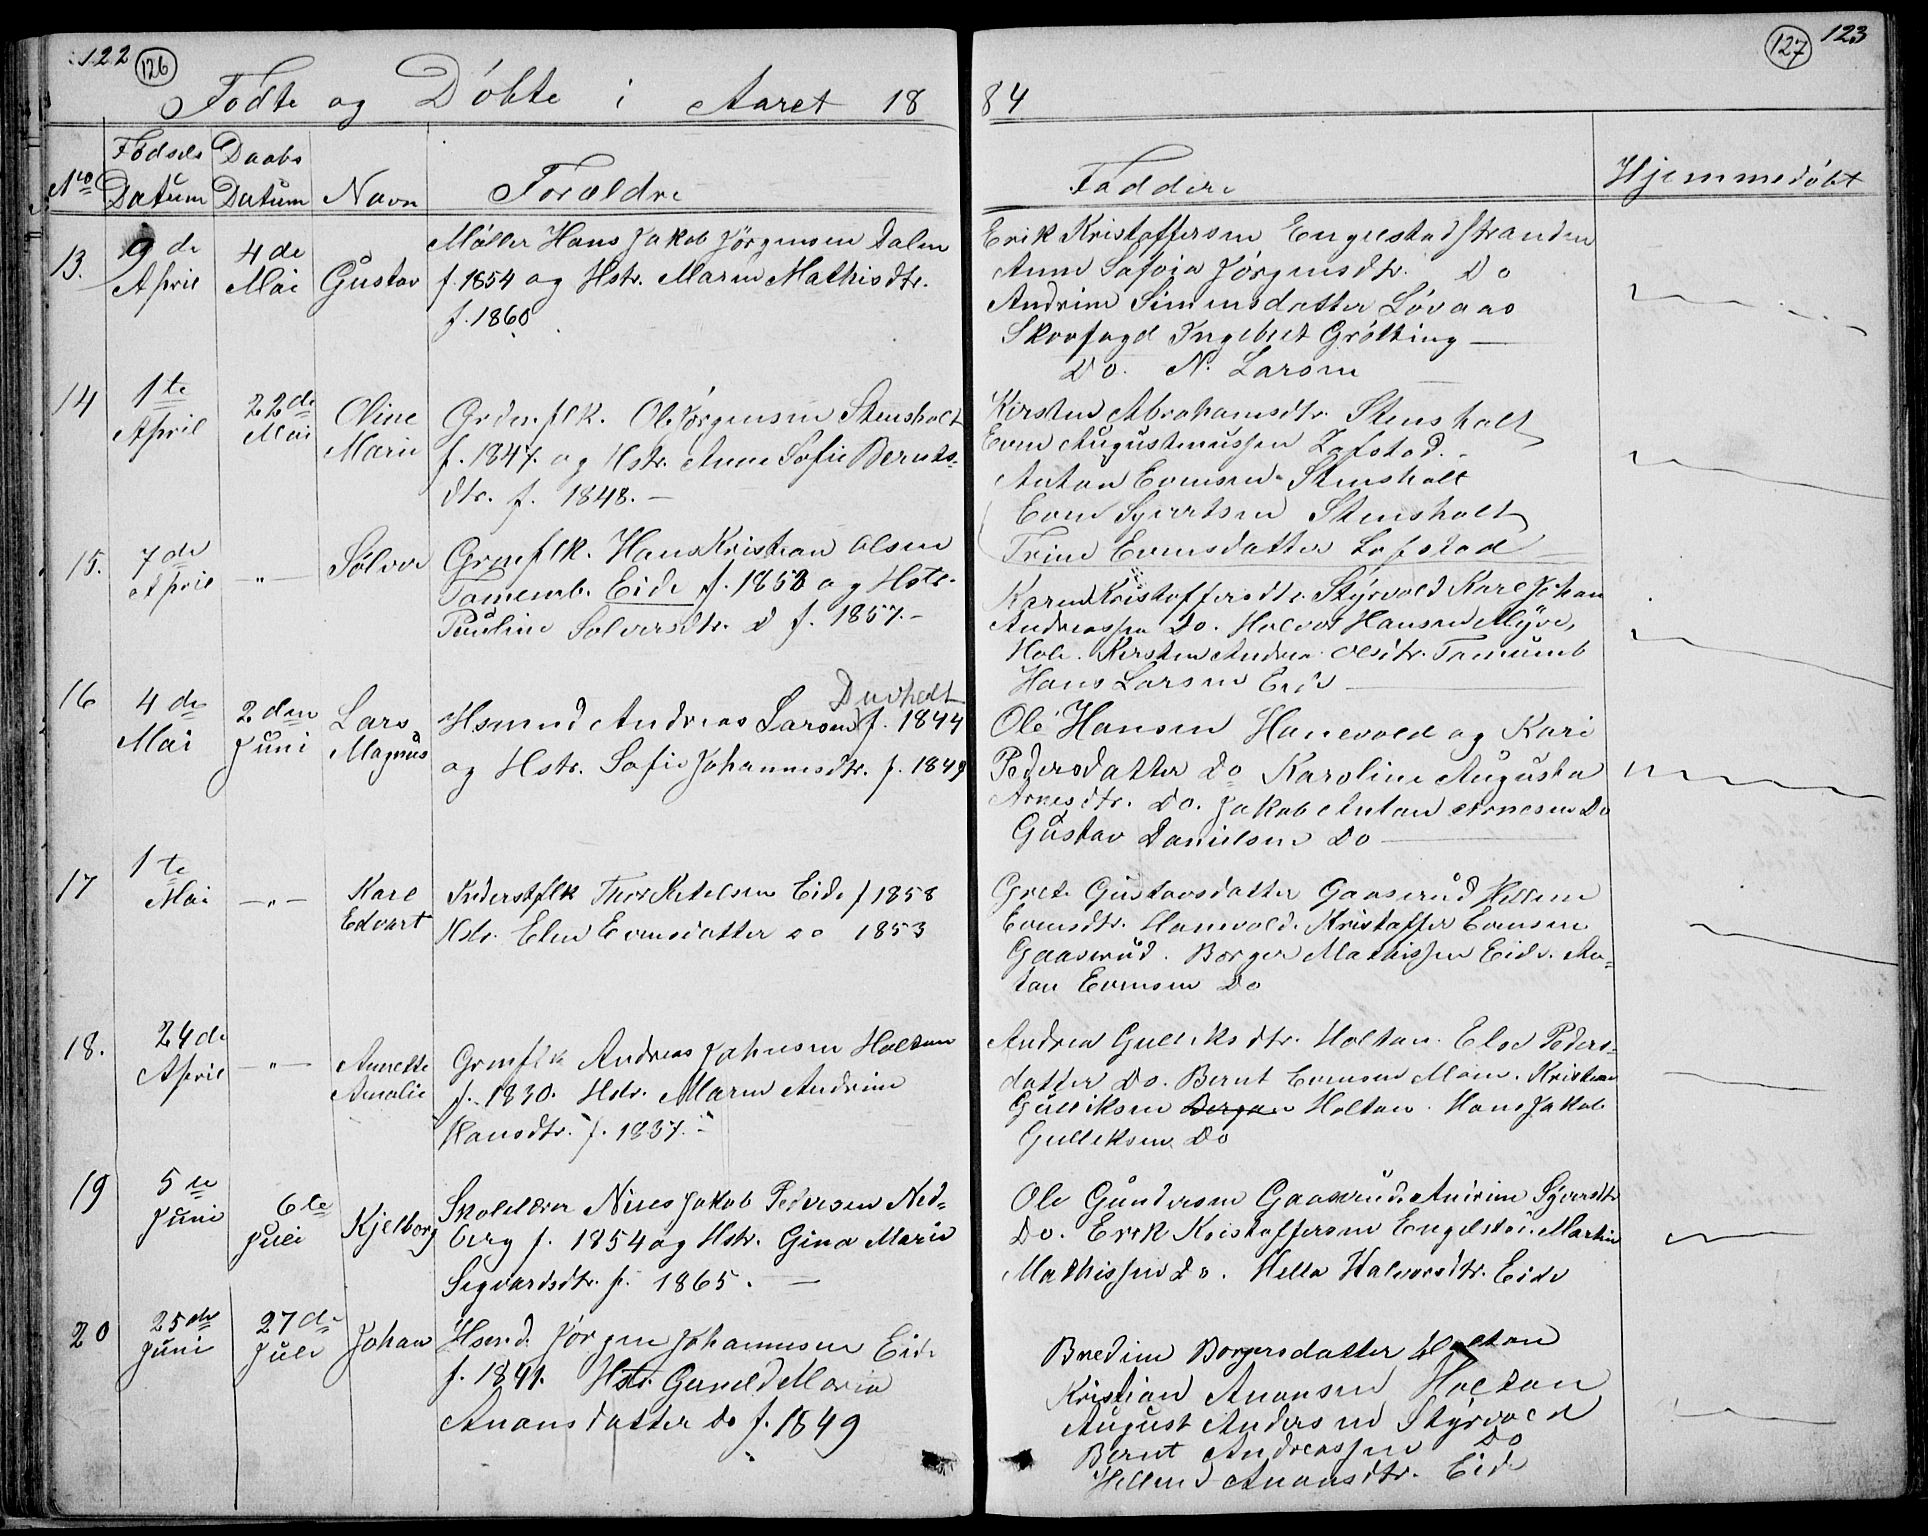 122 126
127 123
Fødte og Døbte i Aaret 18 84
No Fødsels Datum Daabs Datum Navn Forældre Faddere Hjemmedøbt
13. 9de April 4de Mai Gustav
Møller Hans Jakob Jørgensen Dalen
f. 1854 og Hstr. Maren Mathisdtr.
f. 1860
Erik Kristoffersen Engelstadstranden
Anne Sofoia Jørgensdtr. Do
Andrine Simensdatter Løvaas
Skovfogd Ingebret Grøtting —
Do. N. Larsen
14 1te April 22de Mai Oline Marie
Grdm.flk. Ole Jørgensen Stensholt
f. 1847. og Hstr. Anne Sofie Bernts-
dtr. f. 1848. —
Kirsten Abrahamsdtr. Stensholt
Even Augustinussen Lofstad.
Anton Evensen Stensholt
Even Syvertsen Stensholt
Trine Evensdatter Lofstad —
15. 7de April —"— Sølver
Grmflk. Hans Kristian Olsen
Tomemb. Eide f. 1853 og Hstr.
Pauline Solversdtr. d f. 1857. –
Karen Kristoffersdtr. Styrvold Karl Johan
Andreassen Do. Halvor Hansen Myre,
Hole. Kirsten Andrea Olsdtr. Tomemb
Hans Larsen Eide —
16 4de Mai 2den Juni Lars Magnus
Duvhedt
Hsmnd Andreas Larsen f. 1844
og Hstr. Sofie Johannesdtr. f. 1849
Ole Hansen Hanevold og Kari
Pedersdatter Do Karoline Augusta
Arnesdtr. Do. Jakob Anton Arnesen Do
Gustav Danielsen Do —
17 1te Mai —"— Karl Edvart
Inderstflk Thor Ketelsen Eide f 1858
Hstr. Elen Evensdatter do 1853
Grete Gustavsdatter Gaaserud Hellene
Evensdtr. Hanevold. Kristoffer Evensen
Gaaserud. Borger Mathissen Eide. An-
ton Evensen Do
18. 24de April —"— Annette Amalie
Grmflk Andreas Johnsen Holtan
f. 1830. Hstr. Maren Andrine
Hansdtr. f. 1837. –
Andrea Gulliksdtr. Holtan. Else Peders-
datter Do. Bernt Evensen Moen. Kristian
Gulliksen Bergan Holtan. Hans Jakob
Gulliksen Do
19 5te Juni 6te Juli Kjelborg
Skolelærer Nires Jakob Pedersen Ned-
berg f. 1854 og Hstr. Gina Marie
Segvardsdtr. f. 1865. —
Ole Gundersen Gaaserud. Anirine Syversdtr
Do. Erik Kristoffersen Engelstad. Martin
Mathissen Do. Hella Halvorsdtr. Eide
20 25de Juni 27de Juli Johan
Hsmd. Jørgen Johannesen Eide
f. 1841. Hstr Gunild Maria
Anonsdatter Do f. 1849
Bredine Borgersdatter Holtan
Kristian Anonsen Holtan
August Andersen Styrvold
Bernt Andreassen Do
Hellene Anonsdtr. Eide